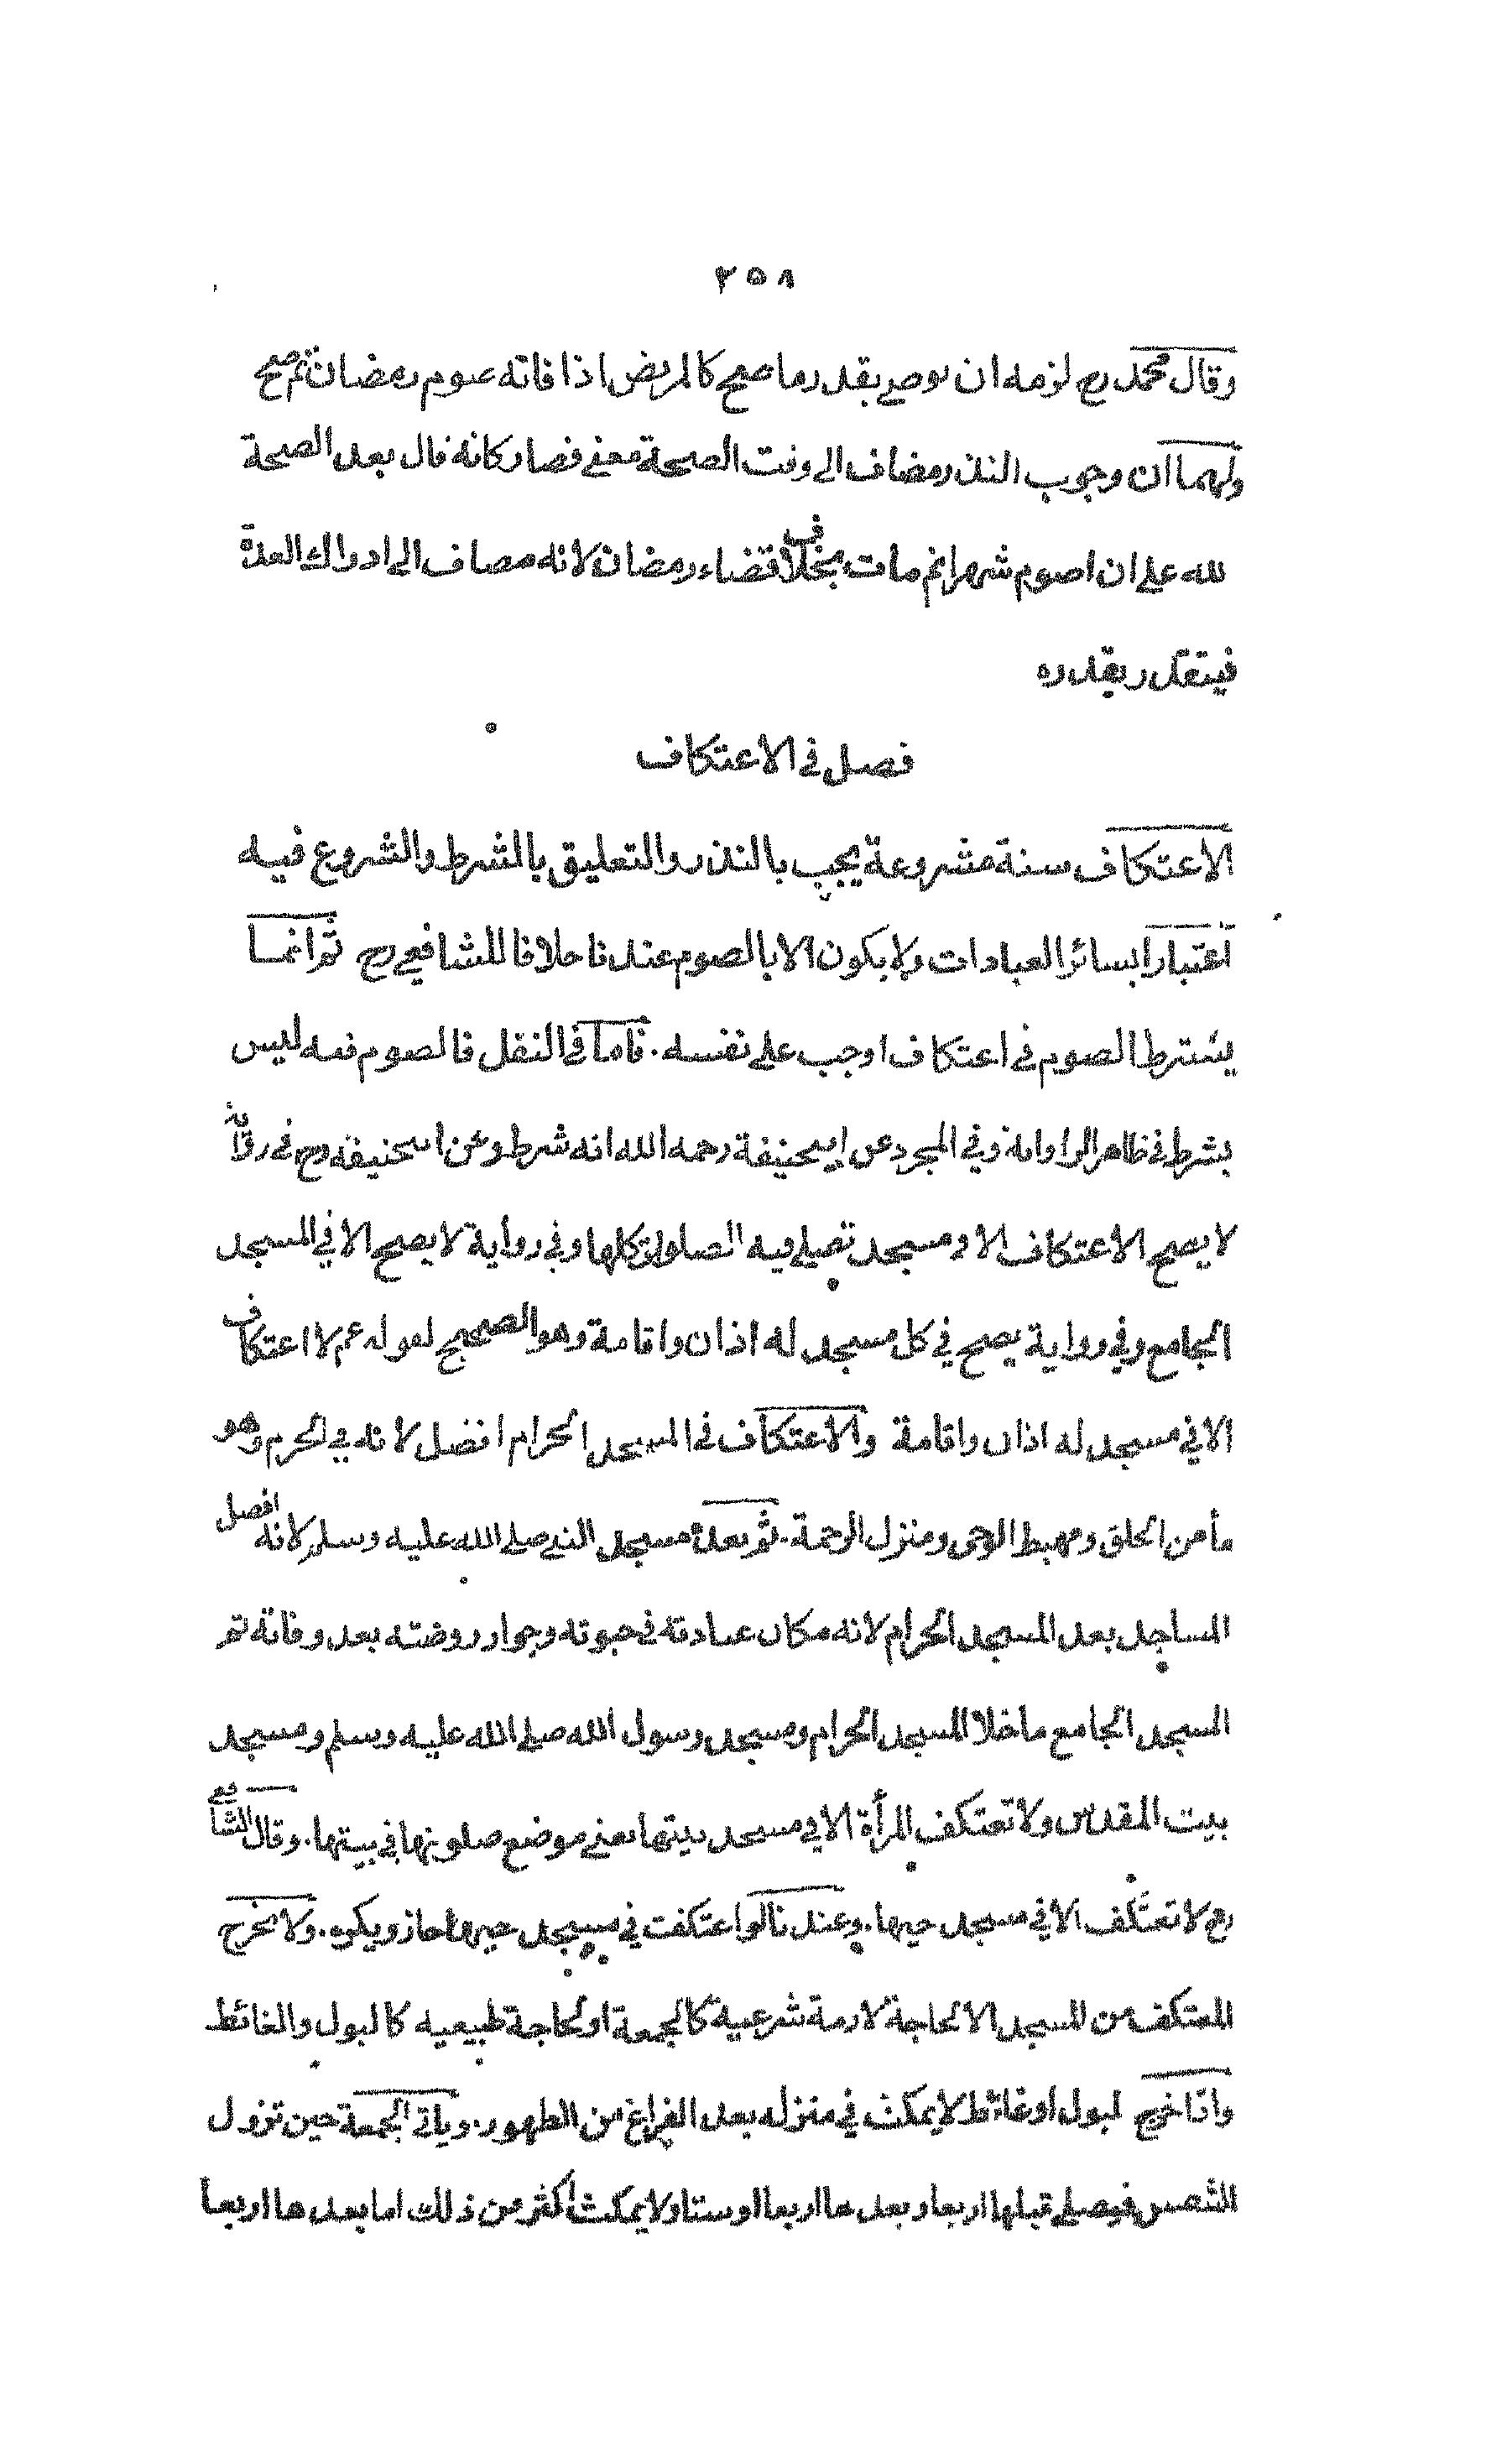 ٢٥٨
وقال محمد رح لزمه ان يوصي بقدر ما صح كالمريض اذا فاته صوم رمضان ثم صح
ولهما ان وجوب النذر مضاف الى وقت الصحة معنى فصار كانه قال بعد الصحة
لله علي ان اصوم شهرا ثم مات بخلاف قضاء رمضان لانه مضاف الى ادراك العدة
فيتقدر بقدره
فصل في الاعتكاف
الاعتكاف سنة مشروعة يجب بالنذر والتعليق بالشرط والشروع فيه
اعتبارا بسائر العبادات ولا يكون الا بالصوم عندنا خلافا للشافعي رح ثم انما
يشترط الصوم في اعتكاف اوجب على نفسه. فاما في النفل فالصوم فيه ليس
بشرط في ظاهر الرواية وفي المجرد عن ابي حنيفة رحمه الله انه شرط وعن ابي حنيفة رح في رواية
لا يصح الاعتكاف الا في مسجد تصلى فيه الصلوات كلها وفي رواية لا يصح الا في المسجد
الجامع وفي رواية يصح في كل مسجد له اذان واقامة وهو الصحيح لقوله عم لا اعتكاف
الا في مسجد له اذان واقامة والاعتكاف في المسجد الحرام افضل لانه في الحرم وهو
مأمن الخلق ومهبط الوحى ومنزل الرحمة. ثم بعده مسجد النبي صلى الله عليه وسلم لانه افضل
المساجد بعد المسجد الحرام لانه مكان عبادته في حيوته وجوار روضته بعد وفاته ثم
المسجد الجامع ما خلا المسجد الحرام ومسجد رسول الله صلى الله عليه وسلم ومسجد
بيت المقدس ولا تعتكف المرأة الا في مسجد بيتها يعني موضع صلوتها في بيتها. وقال الشافعي
رح لا تعتكف الا في مسجد حيها. وعندنا لو اعتكفت في مسجد حيها جاز ويكره. ولا يخرج
المعتكف من المسجد الا لحاجة لازمة شرعية كالجمعة او لحاجة طبيعيه كالبول والغائط
واذا خرج لبول أو غائط لا يمكث في منزله بعد الفراغ من الطهور. ويأتي الجمعة حين تزول
الشمس فيصلي قبلها اربعا وبعدها اربعا او ستا ولا يمكث أكثر من ذلك اما بعدها اربعا